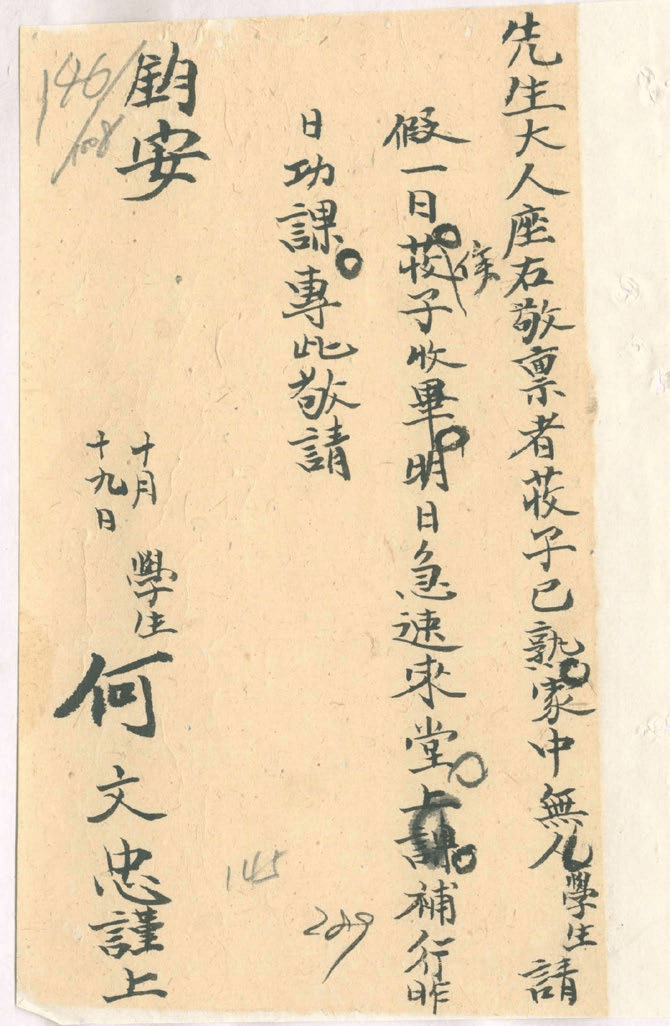 先生大人座右敬禀者荍子已熟家中無人學生請
假一日荍俟子收畢明日急速來堂上課補行昨
日功課專此敬請
鈞安
十月
十九日
學生何文忠謹上
146/108
145
289